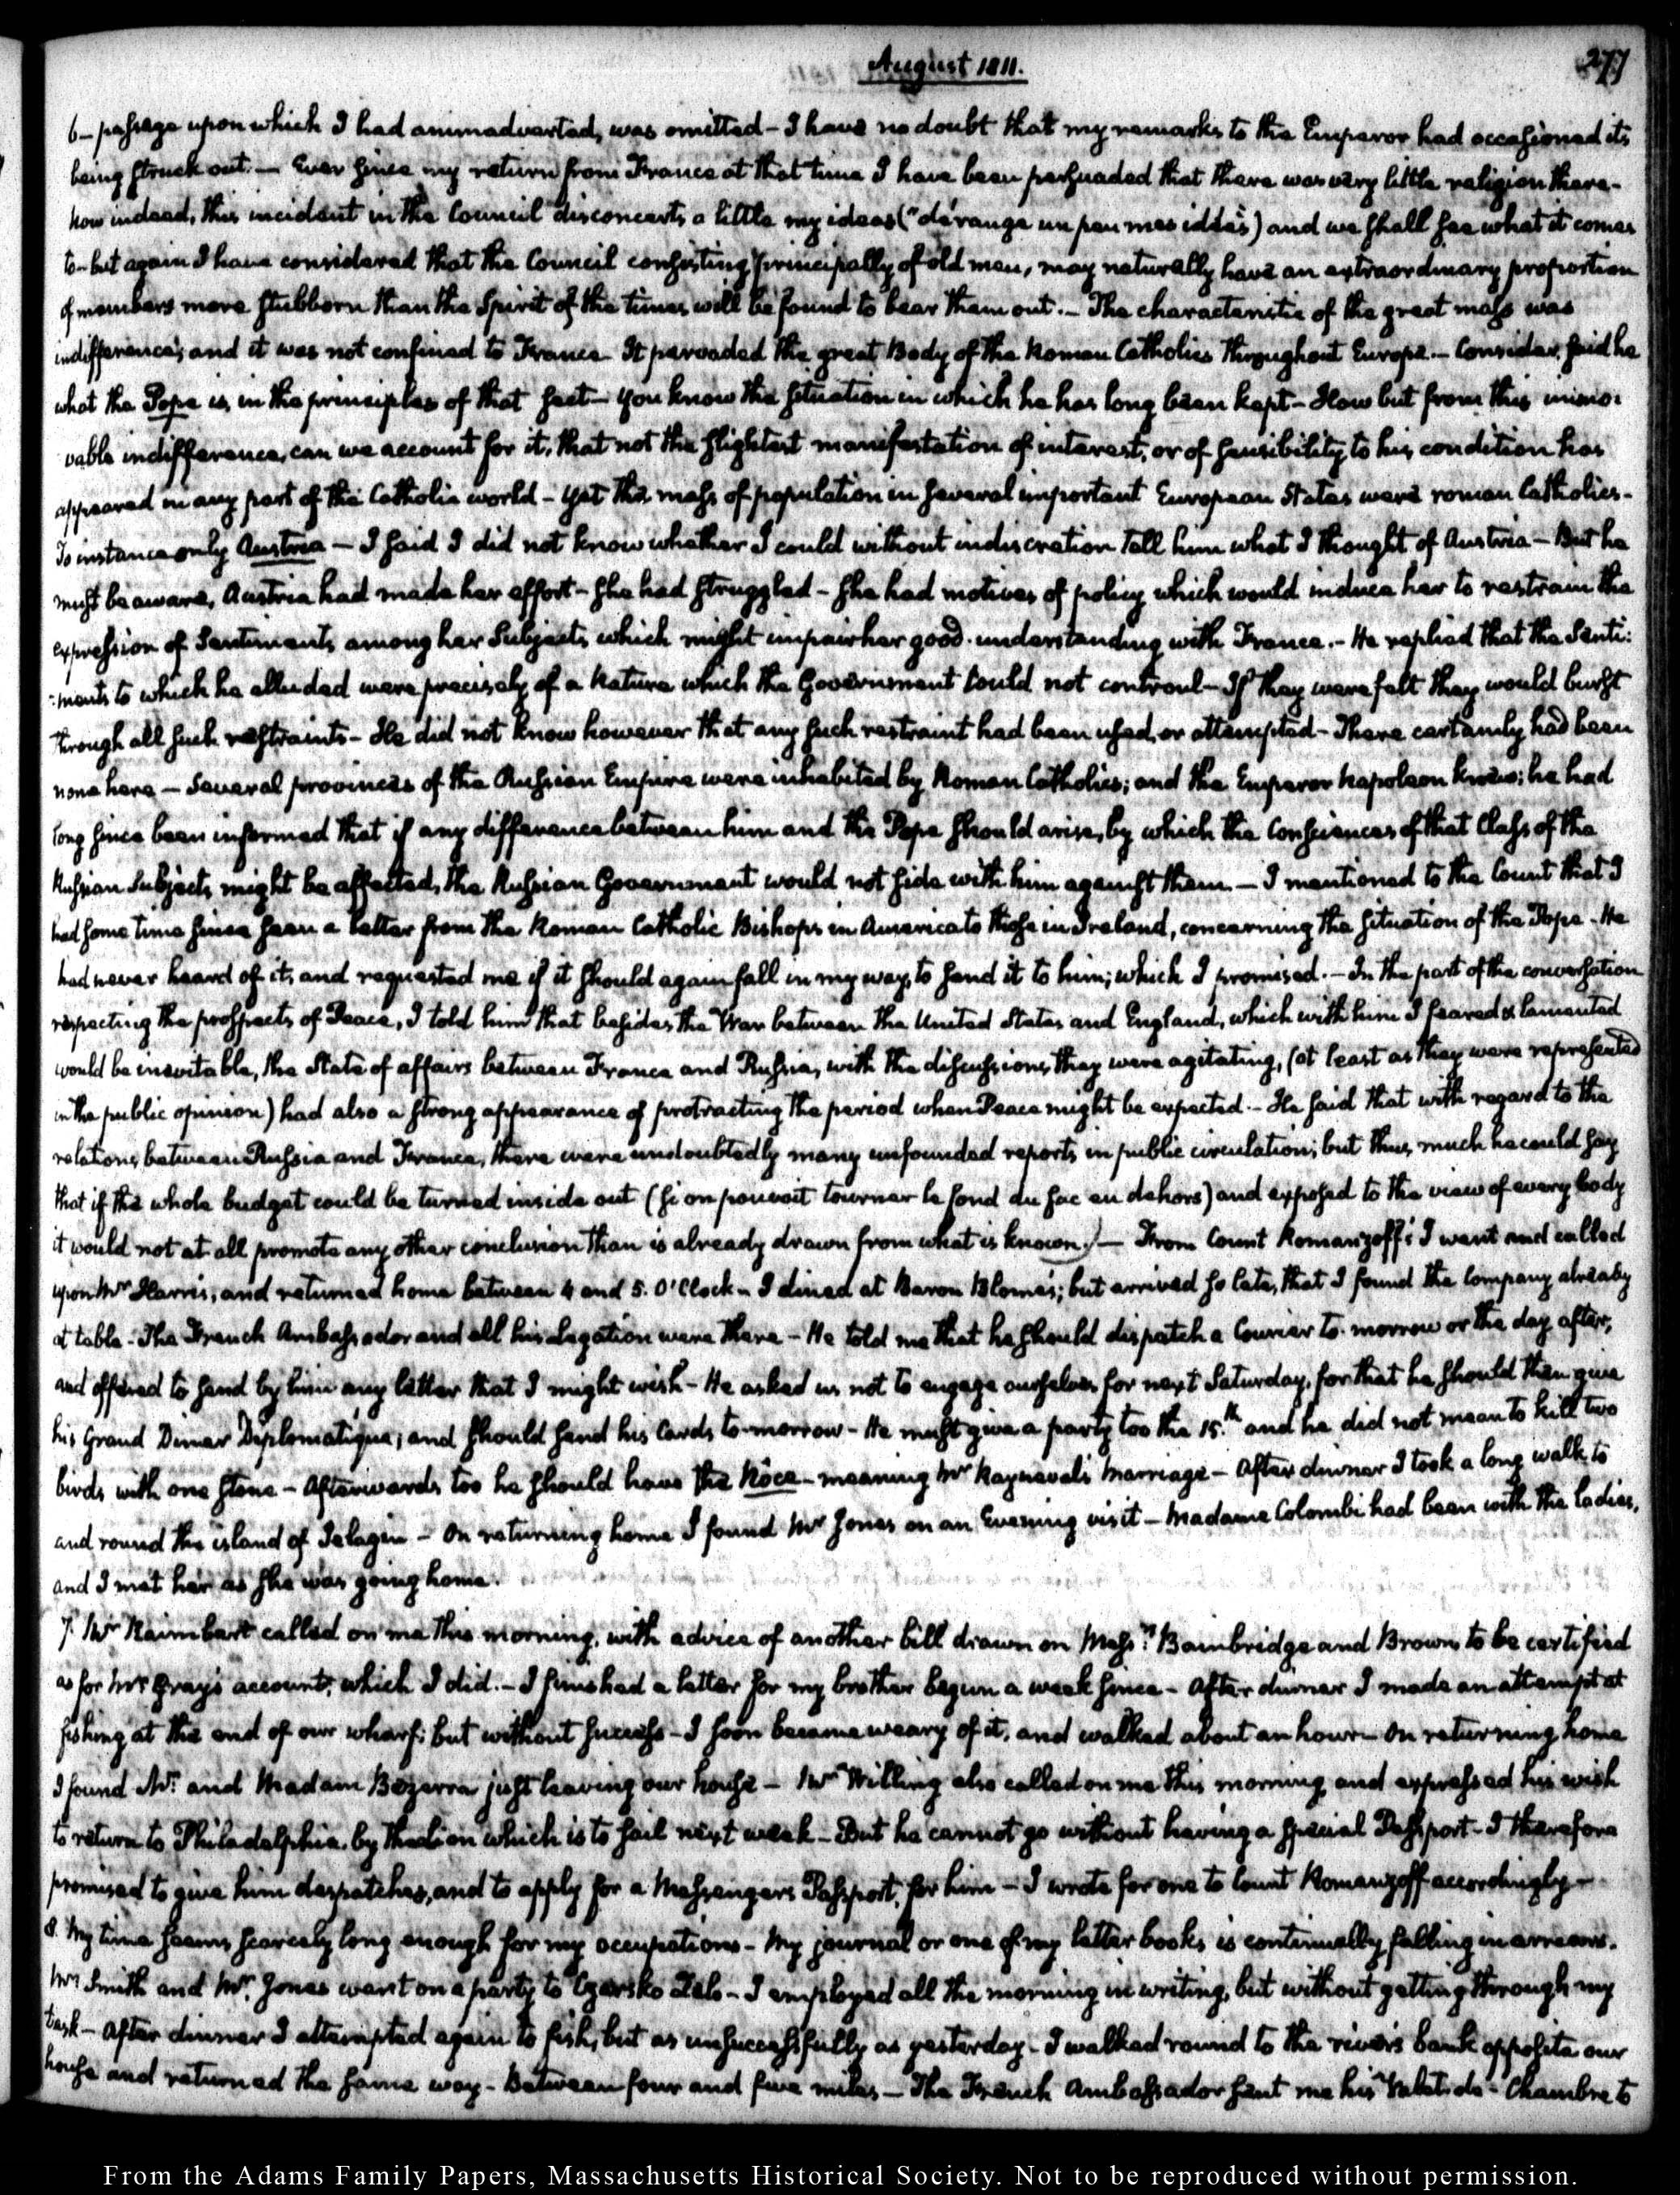 August 1811.
277
6- passage upon which I had animadverted, was omitted - I have no doubt that my remarks to the Emperor had occasioned its
being struck out. - Ever since my return from France at that time I have been persuaded that there was very little religion there -
how indeed, this incident in the Council disconcerts a little my ideas ("dérange un peu mes iddés) and we shall see what it comes
to - but again I have considered that the Council consisting principally of old men, may naturally have an extraordinary proportion
of members more stubborn than the Spirit of the times will be found to bear them out. - The characteristic of the great mass was
indifference; and it was not confined to France - It pervaded the great Body of the Roman Catholics throughout Europe. - Consider, said he
what the Pope is, in the principles of that sect - you know the situation in which he has long been kept - How but from this immo:
vable indifference, can we account for it, that not the slightest manifestation of interest, or of sensibility to his condition has
appeared in any part of the Catholic world - yet the mass of population in several important European States were roman Catholics -
To instance only Austria - I said I did not know whether I could without indiscretion tell him what I thought of Austria - But he
must be aware, Austria had made her effort - she had struggled - she had motives of policy which would induce her to restrain the
expression of Sentiments among her Subjects which might impair her good-understanding with France. - He replied that the Senti:
:ments to which he alluded were precisely of a Nature which the Government could not controul - If they were felt they would burst
through all such restraints - He did not know however that any such restraint had been used, or attempted - There certainly had been
none here - Several provinces of the Russian Empire were inhabited by Roman Catholics; and the Emperor Napoleon knows; he had
long since been informed that if any difference between him and the Pope should arise, by which the Consciences of that Class of the
Russian Subjects might be affected, the Russian Government would not side with him against them. - I mentioned to the Count that I
had some time since seen a letter from the Roman Catholic Bishops in America to those in Ireland, concerning the situation of the Pope - He
had never heard of it, and requested me if it should again fall in my way, to send it to him; which I promised. - In the part of the conversation
respecting the prospects of Peace, I told him that besides the War between the United States and England, which with him I feared & lamented
would be inevitable, the State of affairs between France and Russia, with the discussions they were agitating, (at least as they were represented
in the public opinion) had also a strong appearance of protracting the period when Peace might be expected. - He said that with regard to the
relations between Russia and France, there were undoubtedly many unfounded reports in public circulation; but thus much he could say
that if the whole budget could be turned inside out (si on pouvoit tourner le fond du sac en dehors) and exposed to the view of every body
it would not at all promote any other conclusion than is already drawn from what is known. - From Count Romanzoff's I went and called
upon Mr Harris, and returned home between 4 and 5. O'Clock - I dined at Baron Blome's; but arrived so late, that I found the Company already
at table - The French Ambassador and all his legation were there - He told me that he should dispatch a Courier to-morrow or the day after,
and offered to send by him any letter that I might wish - He asked us not to engage ourselves for next Saturday, for that he should then give
his Grand Diner Diplomatique; and should send his Cards to-morrow - He must give a party too the 15.th and he did not mean to kill two
birds with one stone - Afterwards too he should have the Nôce - meaning Mr Rayneval's Marriage - After dinner I took a long walk to
and round the island of Jelagin - On returning home I found Mr Jones on an Evening visit - Madame Colombi had been with the ladies,
and I met her as she was going home.
7. Mr Raimbert called on me this morning, with advice of another bill drawn on Messrs Bainbridge and Brown, to be certified
as for Mr Gray's account; which I did. - I finished a letter for my brother begun a week since - After dinner I made an attempt at
fishing at the end of our wharf; but without success - I soon became weary of it, and walked about an hour - On returning home
I found Mr. and Madam Bezerra just leaving our house - Mr Willing also called on me this morning, and expressed his wish
to return to Philadelphia, by which is to sail next week - But he cannot go without having a special Passport - I therefore
promised to give him despatches, and to apply for a Messengers Passport, for him - I wrote for one to Count Romanzoff accordingly -
8. My time seems scarcely long enough for my occupations - My journal or one of my letter books is continually falling in arrears.
Mr Smith and Mr. Jones went on a party to Czarsko Zelo - I employed all the morning in writing, but without getting through my
task - After dinner I attempted again to fish, but as unsuccessfully as yesterday - I walked round to the river's bank opposite our
house and returned the same way - Between four and five miles - The French Ambassador sent me his Valet-de-Chambre to
From the Adams Family Papers, Massachusetts Historical Society. Not to be reproduced without permission.